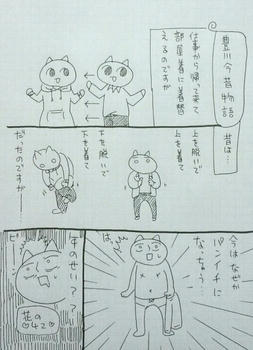 豊川今昔物語
仕事から帰って来て
部屋着に着替
えるのですが
昔は…
上を脱いで
上を着て
下を脱いで
下を着て
だったのですが
今はなぜか
パンイチに
なっちゃう…
年のせい??
花の
♡42♡